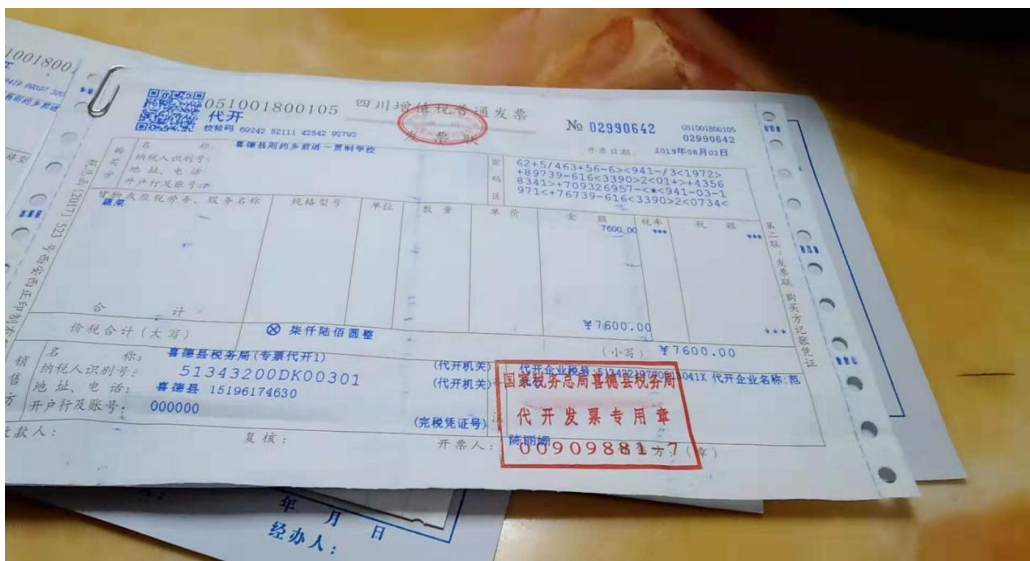 051001800105
四川增值税普通发票
No 02990642
051001800105
02990642
代开
发票联
校验码 69242 52111 42542 92792
开票日期: 2019年08月02日
名 称: 喜德县则约乡前进一贯制学校
纳税人识别号:
地 址、电 话:
开户行及账号:
密码区
62+5/463+56-6><941-/3<1972>
+89739-616<3390>2<01+>+4356
8341>+709326957-<*<941-03-1
971<+76739-616<3390>2<0734<
货物或应税劳务、服务名称 规格型号 单位 数量 单价 金额 税率 税额
蔬菜 7600.00 *** ***
合 计 ¥7600.00 ***
价税合计(大写) ⊗ 柒仟陆佰圆整 (小写) ¥7600.00
销售方
名 称: 喜德县税务局(专票代开1)
纳税人识别号: 51343200DK00301
地 址、电 话: 喜德县 15196174630
开户行及账号: 000000
(代开机关)
(代开机关)
(完税凭证号)
代开企业名称:范
国家税务总局喜德县税务局
代开发票专用章
00909881-7
收款人:
复核:
开票人: 陈丽娜
第二联:发票联 购买方记账凭证
年 月 日
经办人: